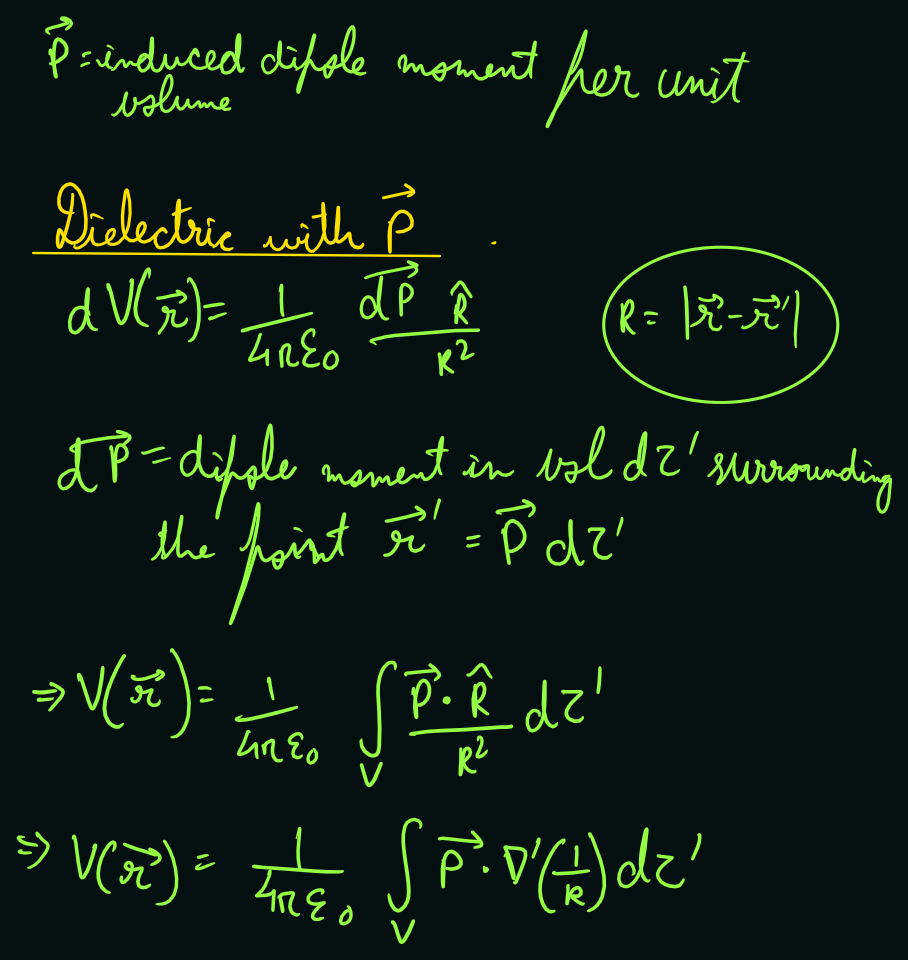 P⃗ = induced dipole moment per unit
volume
Dielectric with P⃗ .
dV(r⃗) = 1/4πε₀ dP⃗ R̂/R²
R = |r⃗ - r⃗'|
dP⃗ = dipole moment in vol dτ' surrounding
the point r⃗' = P⃗ dτ'
⇒ V(r⃗) = 1/4πε₀ ∫_V P⃗·R̂/R² dτ'
⇒ V(r⃗) = 1/4πε₀ ∫_V P⃗·∇'(1/R) dτ'